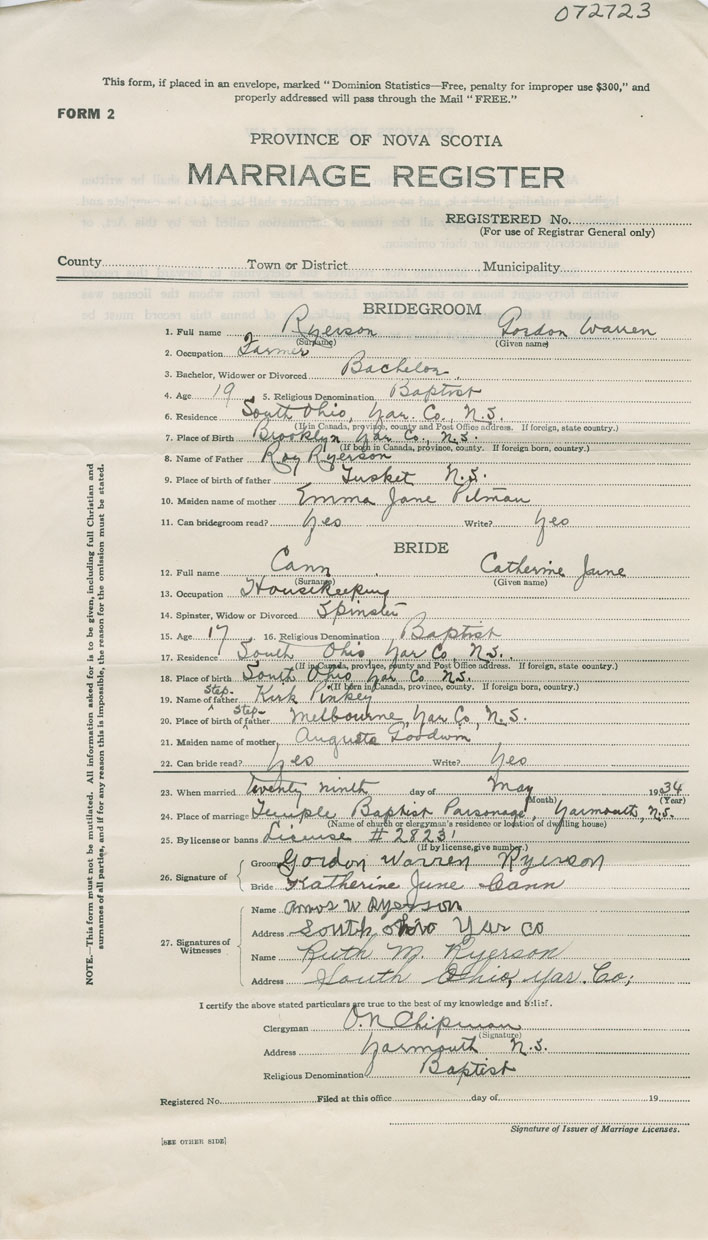 072723
This form, if placed in an envelope, marked "Dominion Statistics—Free, penalty for improper use $300," and
properly addressed will pass through the Mail "FREE."
FORM 2
PROVINCE OF NOVA SCOTIA
MARRIAGE REGISTER
REGISTERED No.
(For use of Registrar General only)
County Town or District Municipality
BRIDEGROOM
1. Full name Ryerson Gordon Warren
(Surname) (Given name)
2. Occupation Farmer
3. Bachelor, Widower or Divorced Bachelor
4. Age 19 5. Religious Denomination Baptist
6. Residence South Ohio, Yar. Co., N.S.
(If in Canada, province, county and Post Office address. If foreign, state country.)
7. Place of Birth Brooklyn Yar Co., N.S.
(If born in Canada, province, county. If foreign born, country.)
8. Name of Father Roy Ryerson
9. Place of birth of father Tusket N.S.
10. Maiden name of mother Emma Jane Pitman
11. Can bridegroom read? Yes Write? Yes
BRIDE
12. Full name Cann Catherine June
(Surname) (Given name)
13. Occupation Housekeeping
14. Spinster, Widow or Divorced Spinster
15. Age 17 16. Religious Denomination Baptist
17. Residence South Ohio Yar Co, N.S.
(If in Canada, province, county and Post Office address. If foreign, state country.)
18. Place of birth South Ohio Yar Co N.S.
(If born in Canada, province, county. If foreign born, country.)
19. Name of Step- father Kirk Pinkey
20. Place of birth of Step- father Melbourne, Yar Co, N.S.
21. Maiden name of mother Augusta Goodwin
22. Can bride read? Yes Write? Yes
23. When married twenty ninth day of May 1934
(Month) (Year)
24. Place of marriage Temple Baptist Parsonage, Yarmouth, N.S.
(Name of church or clergyman's residence or location of dwelling house)
25. By license or banns License # 28231
(If by license, give number.)
26. Signature of
Groom Gordon Warren Ryerson
Bride Katherine June Cann
27. Signatures of Witnesses
Name Amos W Ryerson
Address South Ohio Yar Co
Name Ruth M. Ryerson
Address South Ohio, Yar. Co;
I certify the above stated particulars are true to the best of my knowledge and belief.
Clergyman O.N Chipman
(Signature)
Address Yarmouth N.S.
Religious Denomination Baptist
Registered No. Filed at this office day of 19
Signature of Issuer of Marriage Licenses.
[SEE OTHER SIDE]
NOTE.—This form must not be mutilated. All information asked for is to be given, including full Christian and
surnames of all parties, and if for any reason this is impossible, the reason for the omission must be stated.